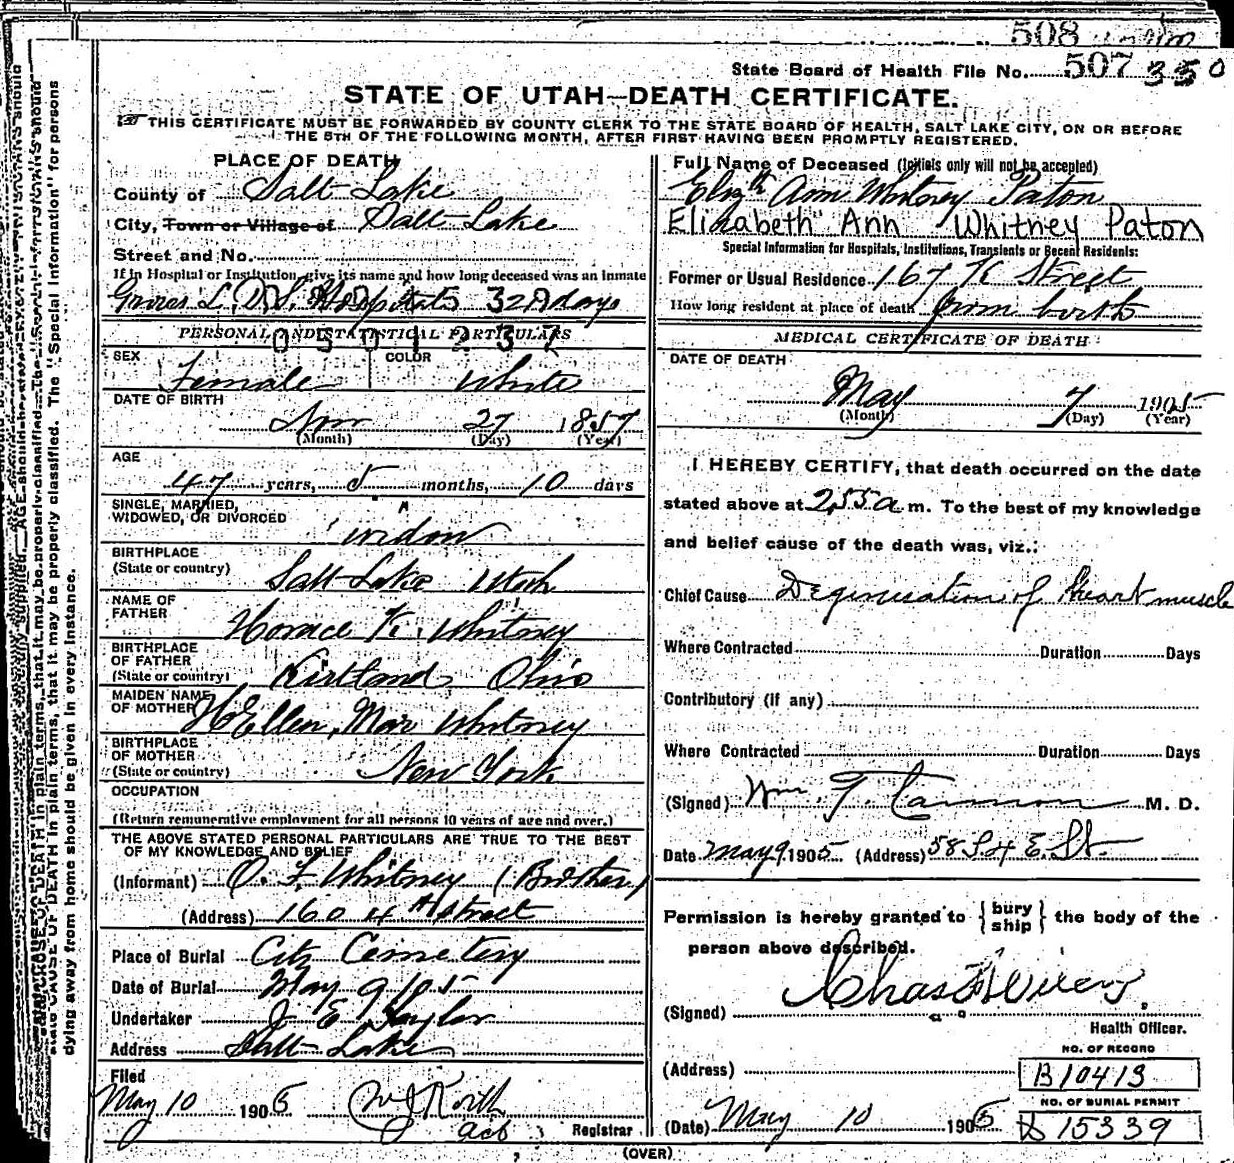 508
State Board of Health File No. 507 350
STATE OF UTAH—DEATH CERTIFICATE.
THIS CERTIFICATE MUST BE FORWARDED BY COUNTY CLERK TO THE STATE BOARD OF HEALTH, SALT LAKE CITY, ON OR BEFORE
THE 5TH OF THE FOLLOWING MONTH, AFTER FIRST HAVING BEEN PROMPTLY REGISTERED.
PLACE OF DEATH
County of Salt Lake
City, Town or Village of Salt Lake
Street and No.
If in Hospital or Institution, give its name and how long deceased was an inmate
L.D.S. Hospital 32 days
PERSONAL AND STATISTICAL PARTICULARS
0501237
SEX Female COLOR White
DATE OF BIRTH
Nov 27 1857
(Month) (Day) (Year)
AGE
47 years, 5 months, 10 days
SINGLE, MARRIED,
WIDOWED, OR DIVORCED widow
BIRTHPLACE
(State or country) Salt Lake Utah
NAME OF
FATHER Horace K. Whitney
BIRTHPLACE
OF FATHER
(State or country) Kirtland Ohio
MAIDEN NAME
OF MOTHER HEllen Mar Whitney
BIRTHPLACE
OF MOTHER
(State or country) New York
OCCUPATION
(Return remunerative employment for all persons 10 years of age and over.)
THE ABOVE STATED PERSONAL PARTICULARS ARE TRUE TO THE BEST
OF MY KNOWLEDGE AND BELIEF
(Informant) O. F. Whitney (Brother)
(Address) 160 4th Street
Place of Burial City Cemetery
Date of Burial May 9 05
Undertaker J E Taylor
Address Salt Lake
Filed
May 10 1905
Registrar
Full Name of Deceased (Initials only will not be accepted)
Elizth Ann Whitney Paton
Elizabeth Ann Whitney Paton
Special Information for Hospitals, Institutions, Transients or Recent Residents:
Former or Usual Residence 167 K Street
How long resident at place of death from birth
MEDICAL CERTIFICATE OF DEATH
DATE OF DEATH
May 7 1905
(Month) (Day) (Year)
I HEREBY CERTIFY, that death occurred on the date
stated above at 2,55 a m. To the best of my knowledge
and belief cause of the death was, viz.:
Chief Cause Degeneration of heart muscle
Where Contracted Duration Days
Contributory (if any)
Where Contracted Duration Days
(Signed) Wm. T. Cannon M. D.
Date May 9 1905 (Address) 58 S 4 E. St.
Permission is hereby granted to { bury ship } the body of the
person above described.
(Signed) Chas
Health Officer.
(Address)
NO. OF RECORD
B10413
NO. OF BURIAL PERMIT
15339
(Date) May 10 1905
(OVER)
state CAUSE OF DEATH in plain terms, that it may be properly classified. The "Special Information" for persons
dying away from home should be given in every instance.